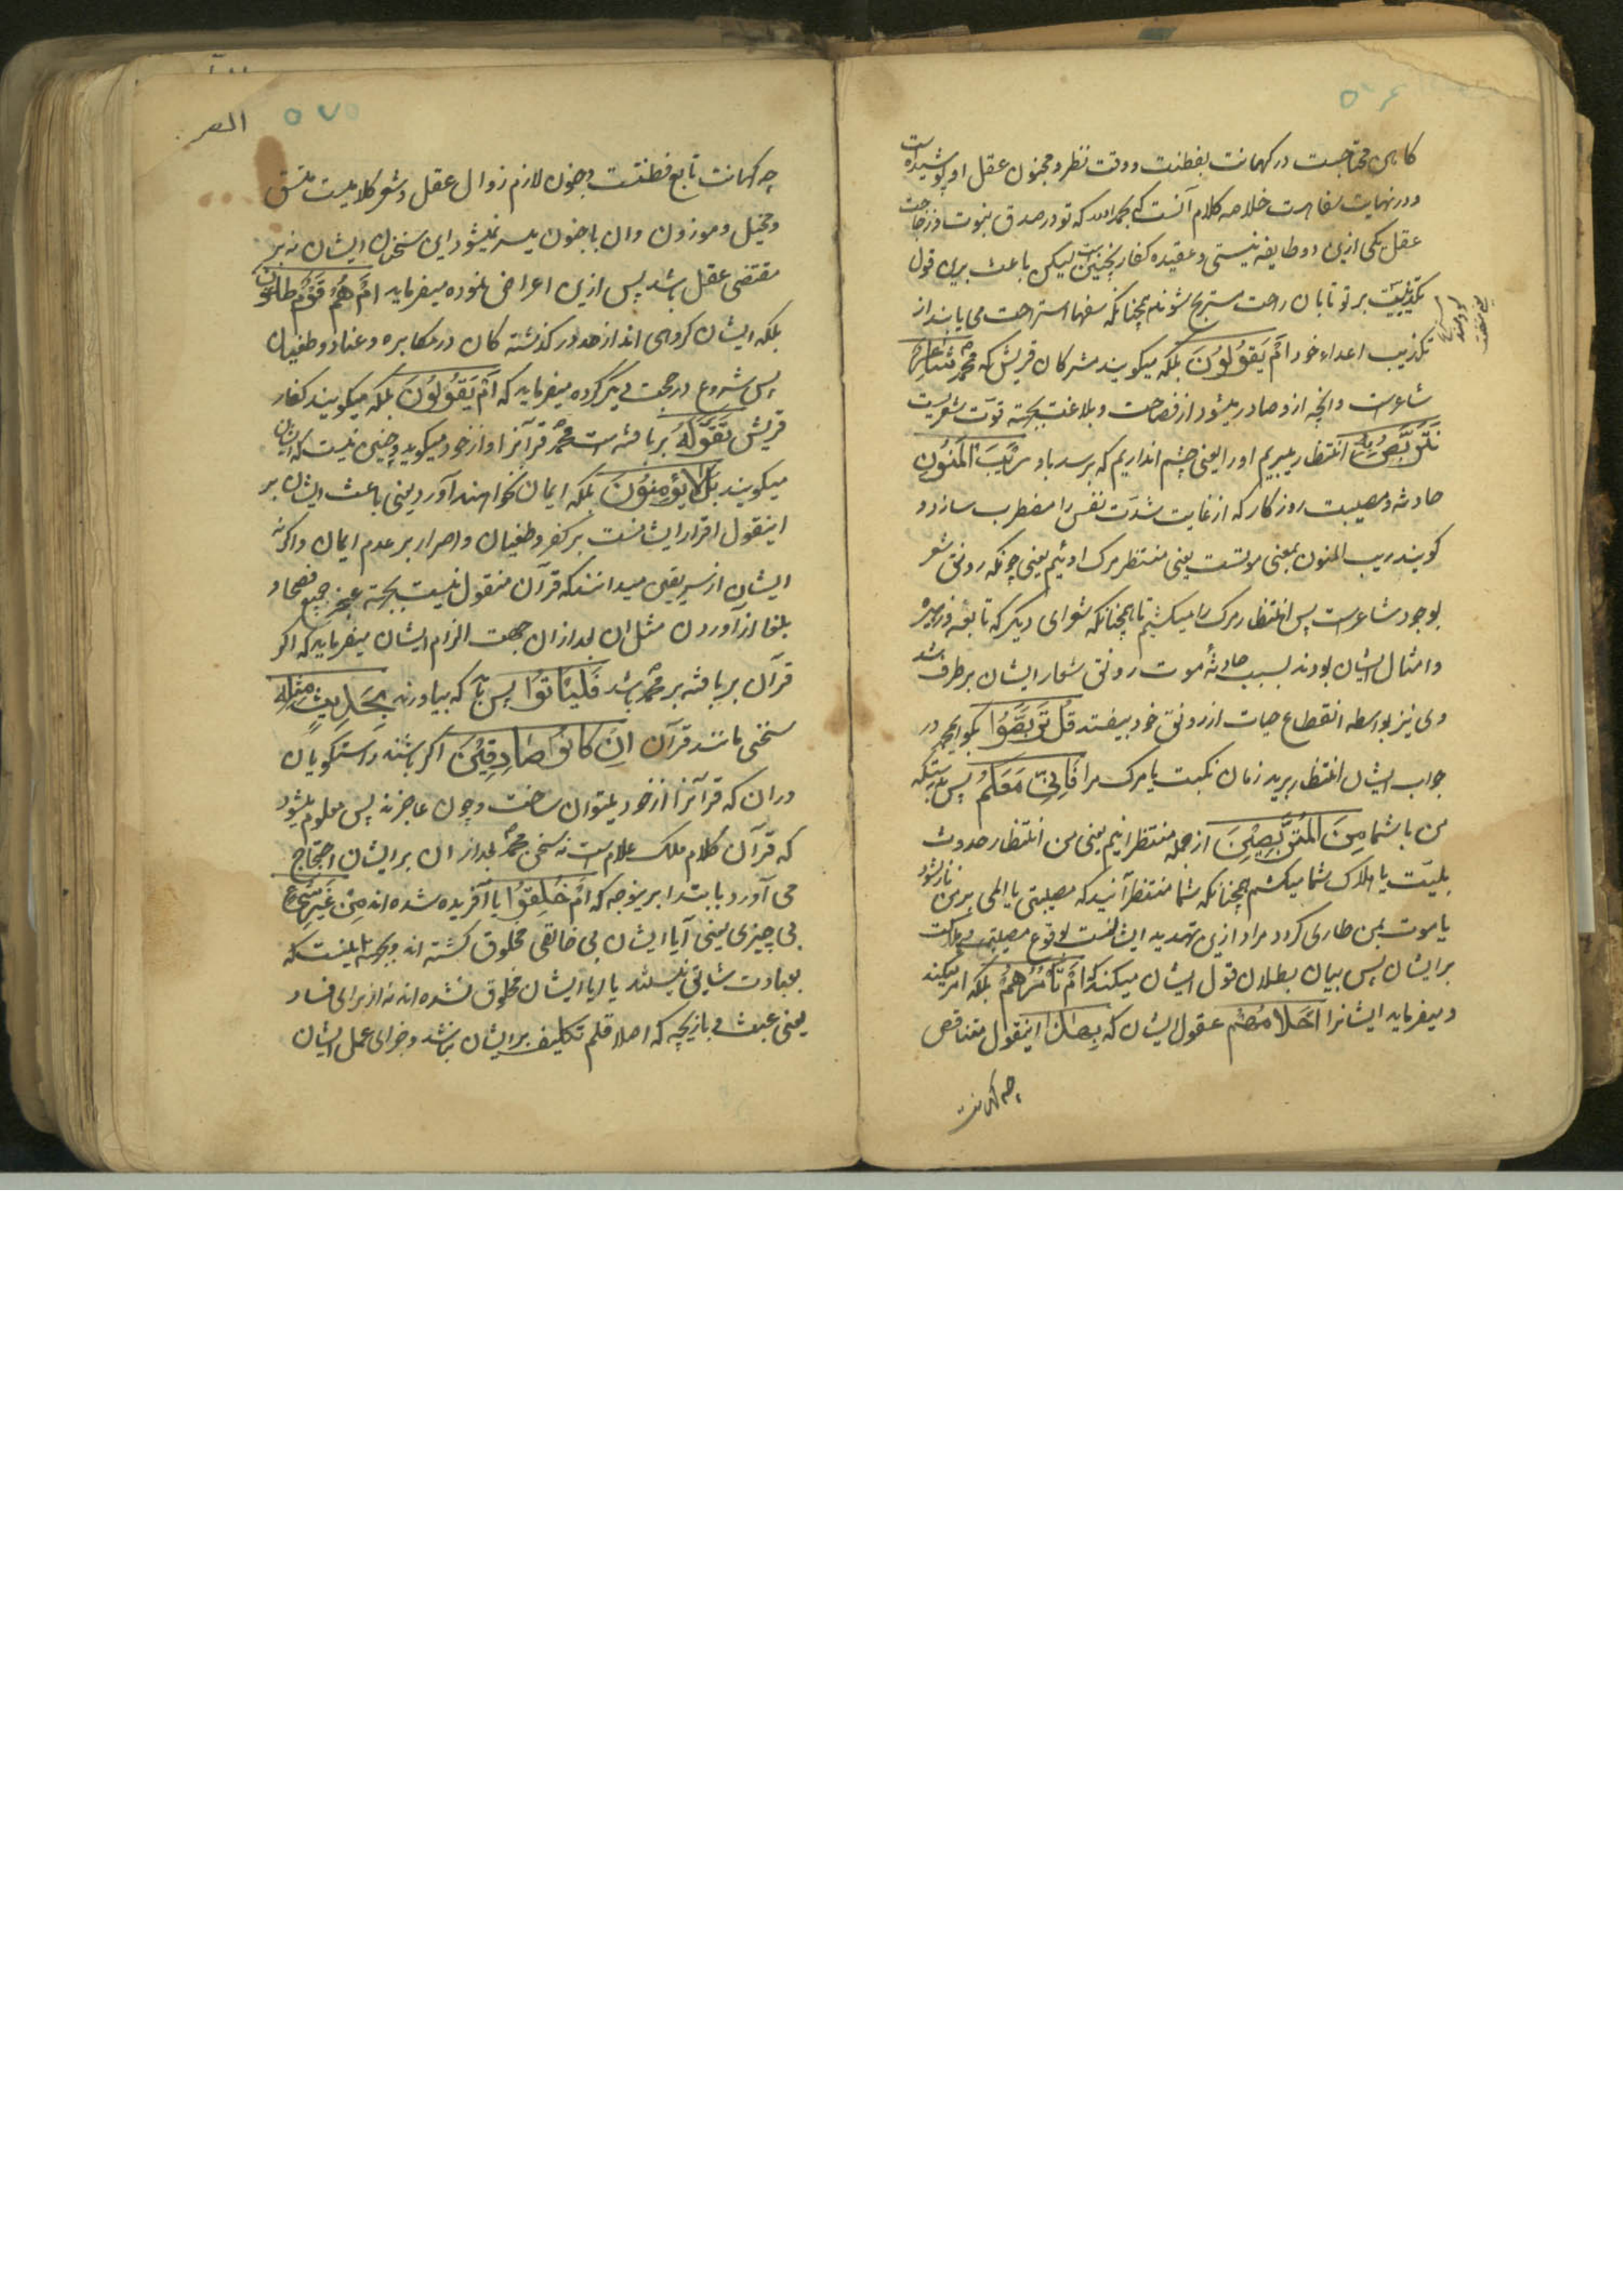 ۵۷۴
کاهن محتاجست در کهانت بفطنت و دقت نظر و مجنون عقل او پوشیده است
و در نهایت سفاهت خلاصه کلام آنست که بحمدالله که تو در صدق نبوت و زجاحت
عقل یکی ازین دو طایفه نیستی و عقیده کفار بخنین است لیکن باعث برین قول
تکذیبست بر تو تا بان راحت مستریح شوند همچنانکه سفها استراحت می یابند از
تکذیب اعداء خود اَمْ یَقُولُونَ بلکه میکویند مشرکان قریش که محمد شَاعِرٌ
شاعرست و آنچه ازو صادر میشود از فصاحت و بلاغت بجهته قوت شعریست
نَتَرَبَّصُ بِهِ انتظار میبریم او را یعنی چشم اندازیم که برسد باو رَیْبَ الْمَنُونِ
حادثه و مصیبت روزکار که از غایت شدت نفس را مضطرب سازد و
کویند ریب المنون بمعنی موتست یعنی منتظر مرک اوئیم یعنی چونکه رونق شعر
بوجود شاعرست پس انتظار مرک را میکشیم تا همچنانکه شعرای دیکر که نابغه و زهیر
و امثال ایشان بودند بسبب حادثهٔ موت رونق شعار ایشان برطرف شد
وی نیز بواسطه انقطاع حیات از رونق خود بیفتد قُلْ تَرَبَّصُوا بکو ایمحمد در
جواب ایشان انتظار برید زمان نکبت یا مرک مرا فَاِنِّی مَعَکُمْ پس بدرستیکه
من با شما مِنَ الْمُتَرَبِّصِینَ از جمله منتظرانیم یعنی من انتظار حدوث
بلیت یا هلاک شما میکشم همچنانکه شما منتظر آنید که مصیبتی یا المی بر من نازل شود
یا موت بمن طاری کردد مراد ازین تهدید ایشانست بوقوع مصیبتی و هلاکت
بر ایشان پس بیان بطلان قول ایشان میکند که اَمْ تَأْمُرُهُمْ بلکه امر میکند
و میفرماید ایشانرا اَحْلَامُهُمْ عقول ایشان که بِهٰذَا اینقول متناقض
چه کهانت
۵۷۵
چه کهانت تابع فطنتست و جنون لازم زوال عقل و شعر کلامیست متسق
و مخیل و موزون و ان با جنون میسر نمیشود این سخنان ایشان نه بر
مقتضی عقل باشد پس ازین اعراض نموده میفرماید اَمْ هُمْ قَوْمٌ طَاغُونَ
بلکه ایشان کروهی اند از حد در کذشته کان در مکابره و عناد و طغیان
پس شروع در حجت دیکر کرده میفرماید که اَمْ یَقُولُونَ بلکه میکویند کفار
قریش تَقَوَّلَهُ بربافته است محمد قرآنرا و از خود میکوید و چنین نیست که ایشان
میکویند بَلْ لَا یُؤْمِنُونَ بلکه ایمان نخواهند آورد یعنی باعث ایشان بر
اینقول اقرار ایشانست بر کفر و طغیان و اصرار بر عدم ایمان و اکرنه
ایشان از سر یقین میدانند که قرآن منقول نیست بجهته عجز جمیع فصحا و
بلغا از آوردن مثل ان بعد از ان جهت الزام ایشان میفرماید که اکر
قرآن بربافته بر محمد باشد فَلْیَأْتُوا پس تا که بیاورند بِحَدِیثٍ مِثْلِهِ
سخنی مانند قرآن اِنْ کَانُوا صَادِقِینَ اکر باشند راستکویان
در ان که قرآنرا از خود میتوان ساخت و چون عاجزند پس معلوم میشود
که قرآن کلام ملک علام است نه سخن محمد بعد از ان بر ایشان احتجاج
می آورد بابتدا برینوجه که اَمْ خُلِقُوا یا آفریده شده اند مِنْ غَیْرِ شَیْءٍ
بی چیزی یعنی آیا ایشان بی خالقی مخلوق کشته اند
بعبادت شایق نیستند یا ایا ایشان مخلوق نشده اند نه از برای فساد
یعنی عبث و بازیچه که اصلا قلم تکلیف بر ایشان نباشد و جزای عمل ایشان